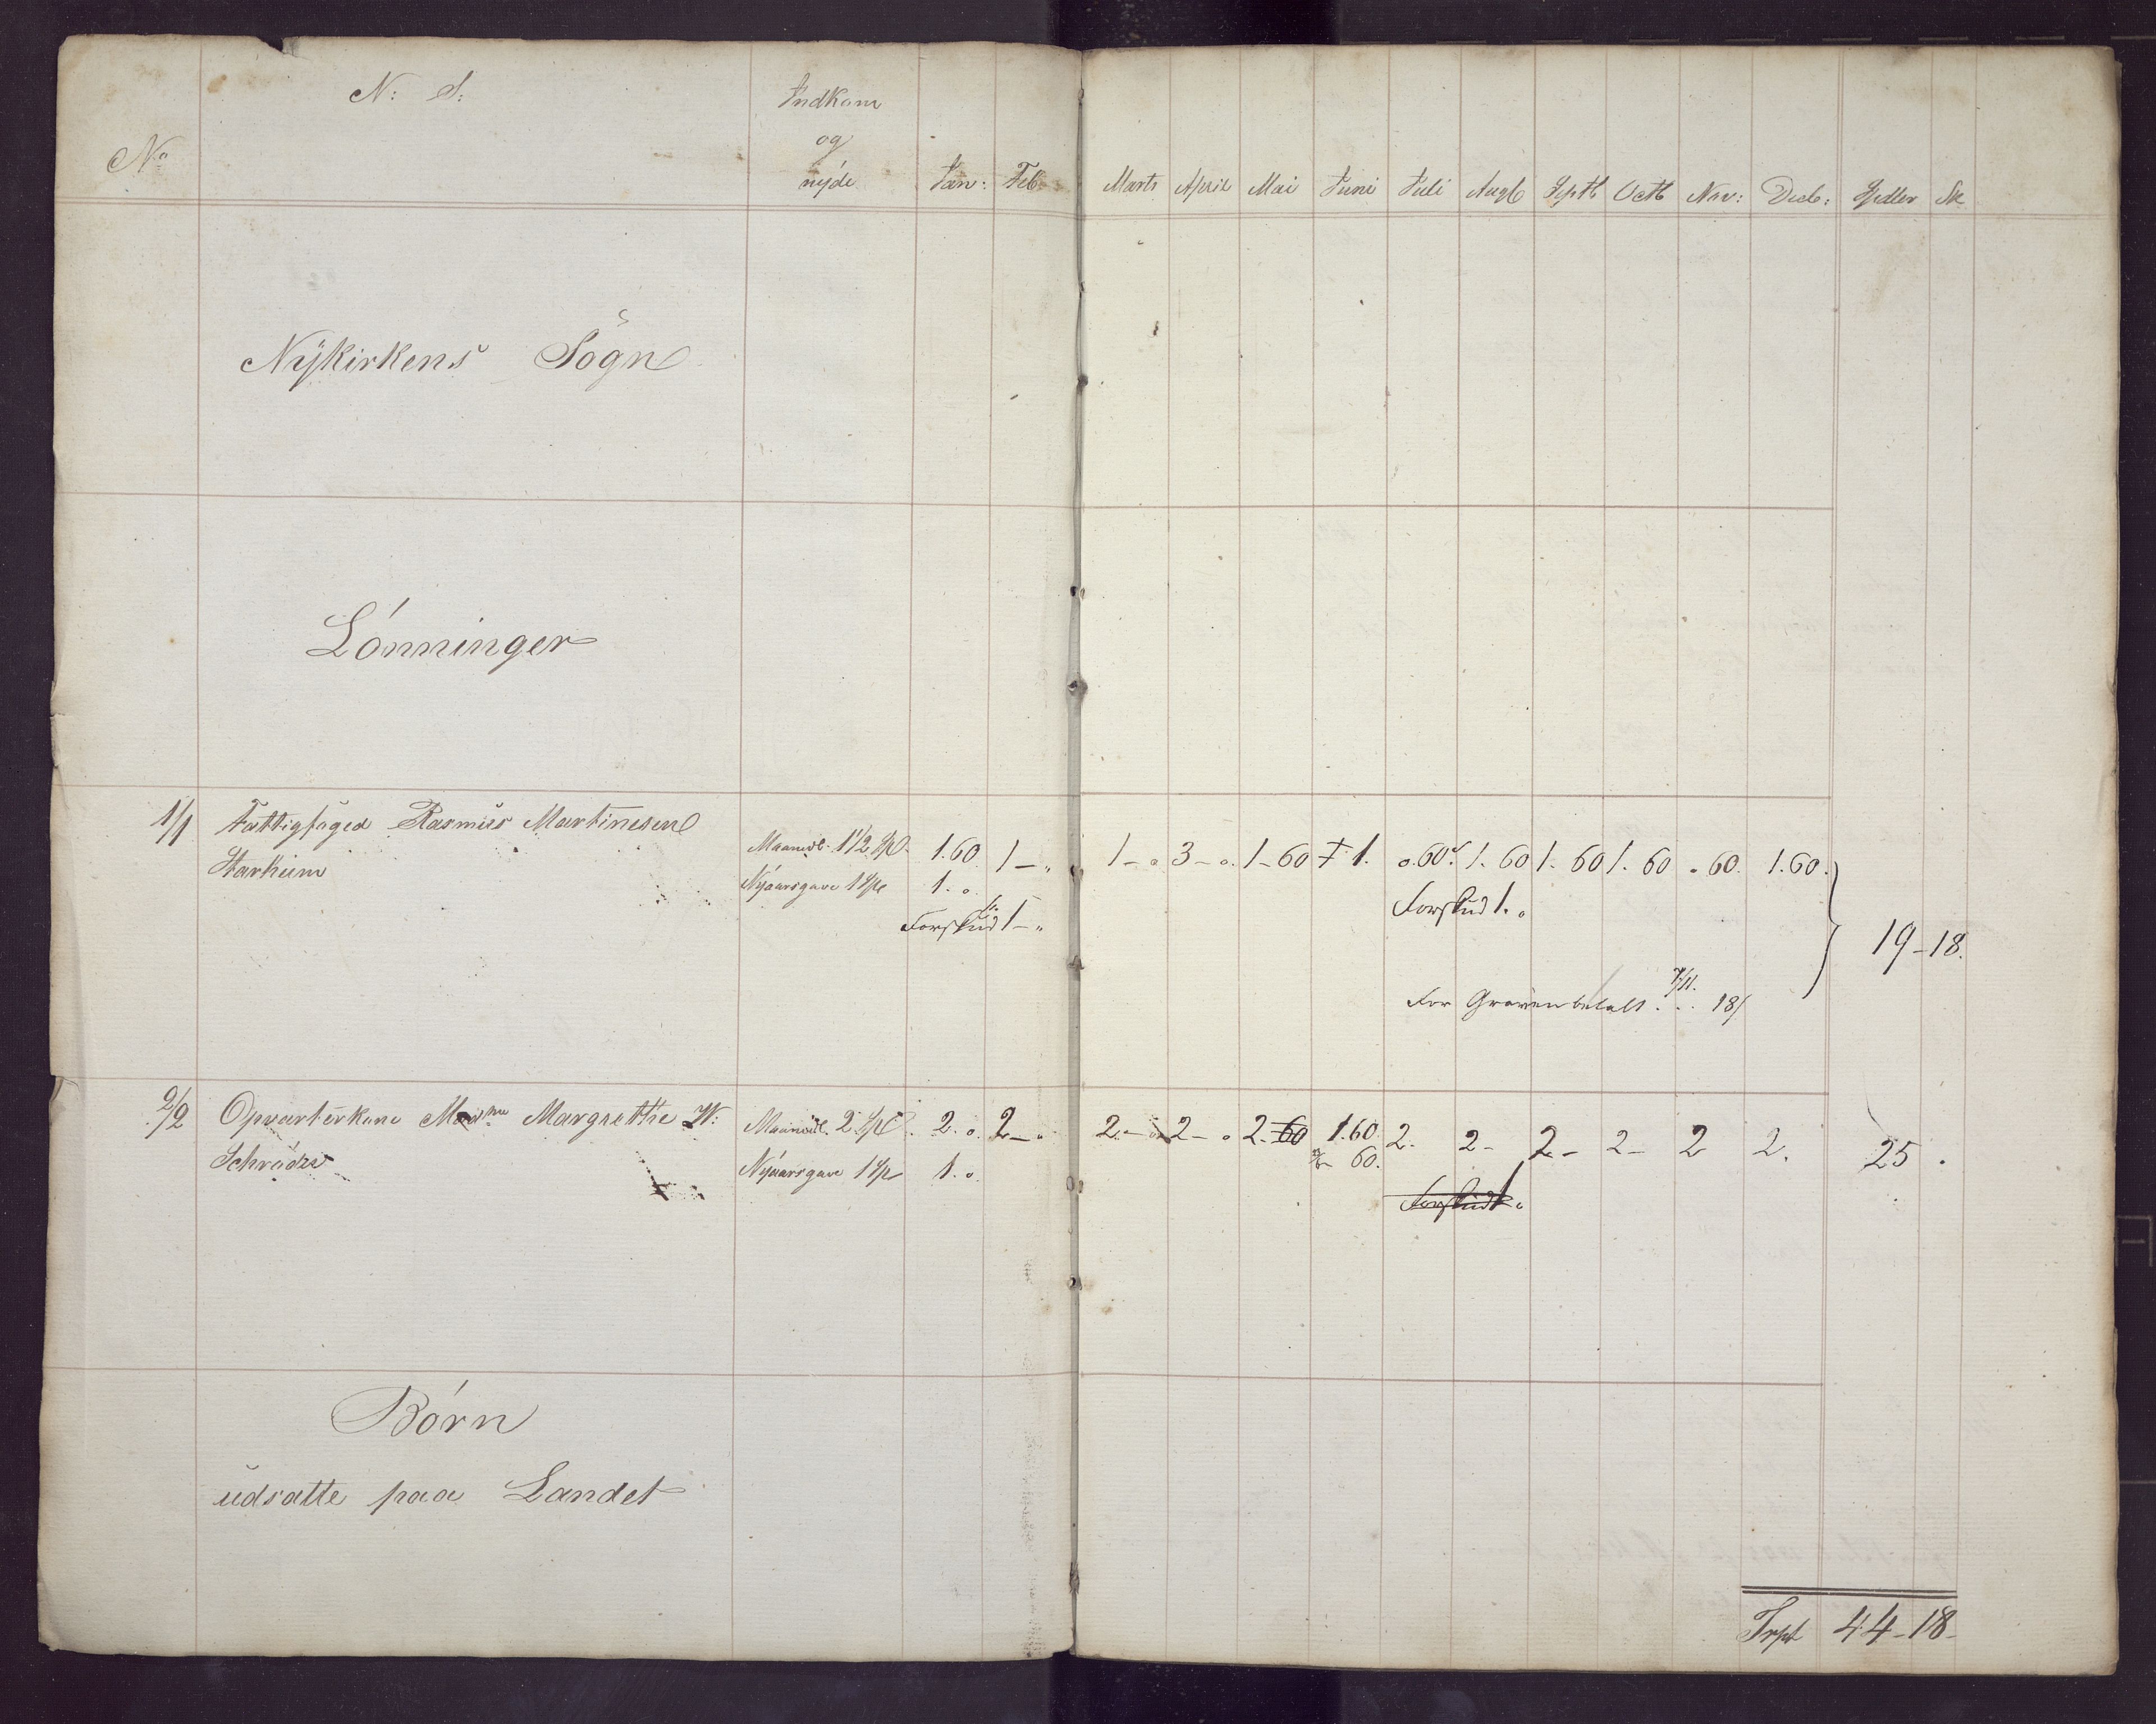 No
N: S:
Indkom
og
nyde
Jan: Feb: Marts April Mai Juni Juli Augb Septb Octb Nov: Decb: Spdler Sk
Nÿkirkens Sogn
Lónninger
1/1 Fattigfoged Rasmus Martinesen
Starheim
Maanedl. 1 1/2 Spd. 1.60. 1 – „ 1 – o 3 – o. 1 – 60 1. o.60. 1. 60 1. 60 1. 60 . 60. 1.60.
Nÿaarsgave 1 Sp 1. o.
Forskud 1 – „ Forskud 1. o
19 – 18.
For Graven betalt . . . 18
2/2 Opvarterkone Margrethe W:
Schrøder
Maanedl. 2 Sp 2. o. 2 – o 2. – 2 – o 2. 60 1.60. 2. 2 – 2 – 2 – 2 2. 25 .
60.
Nÿaarsgave 1 Sp 1. o.
Forskud 1. o
Bórn
udsatte paa Landet
Trpt 44 – 18 –